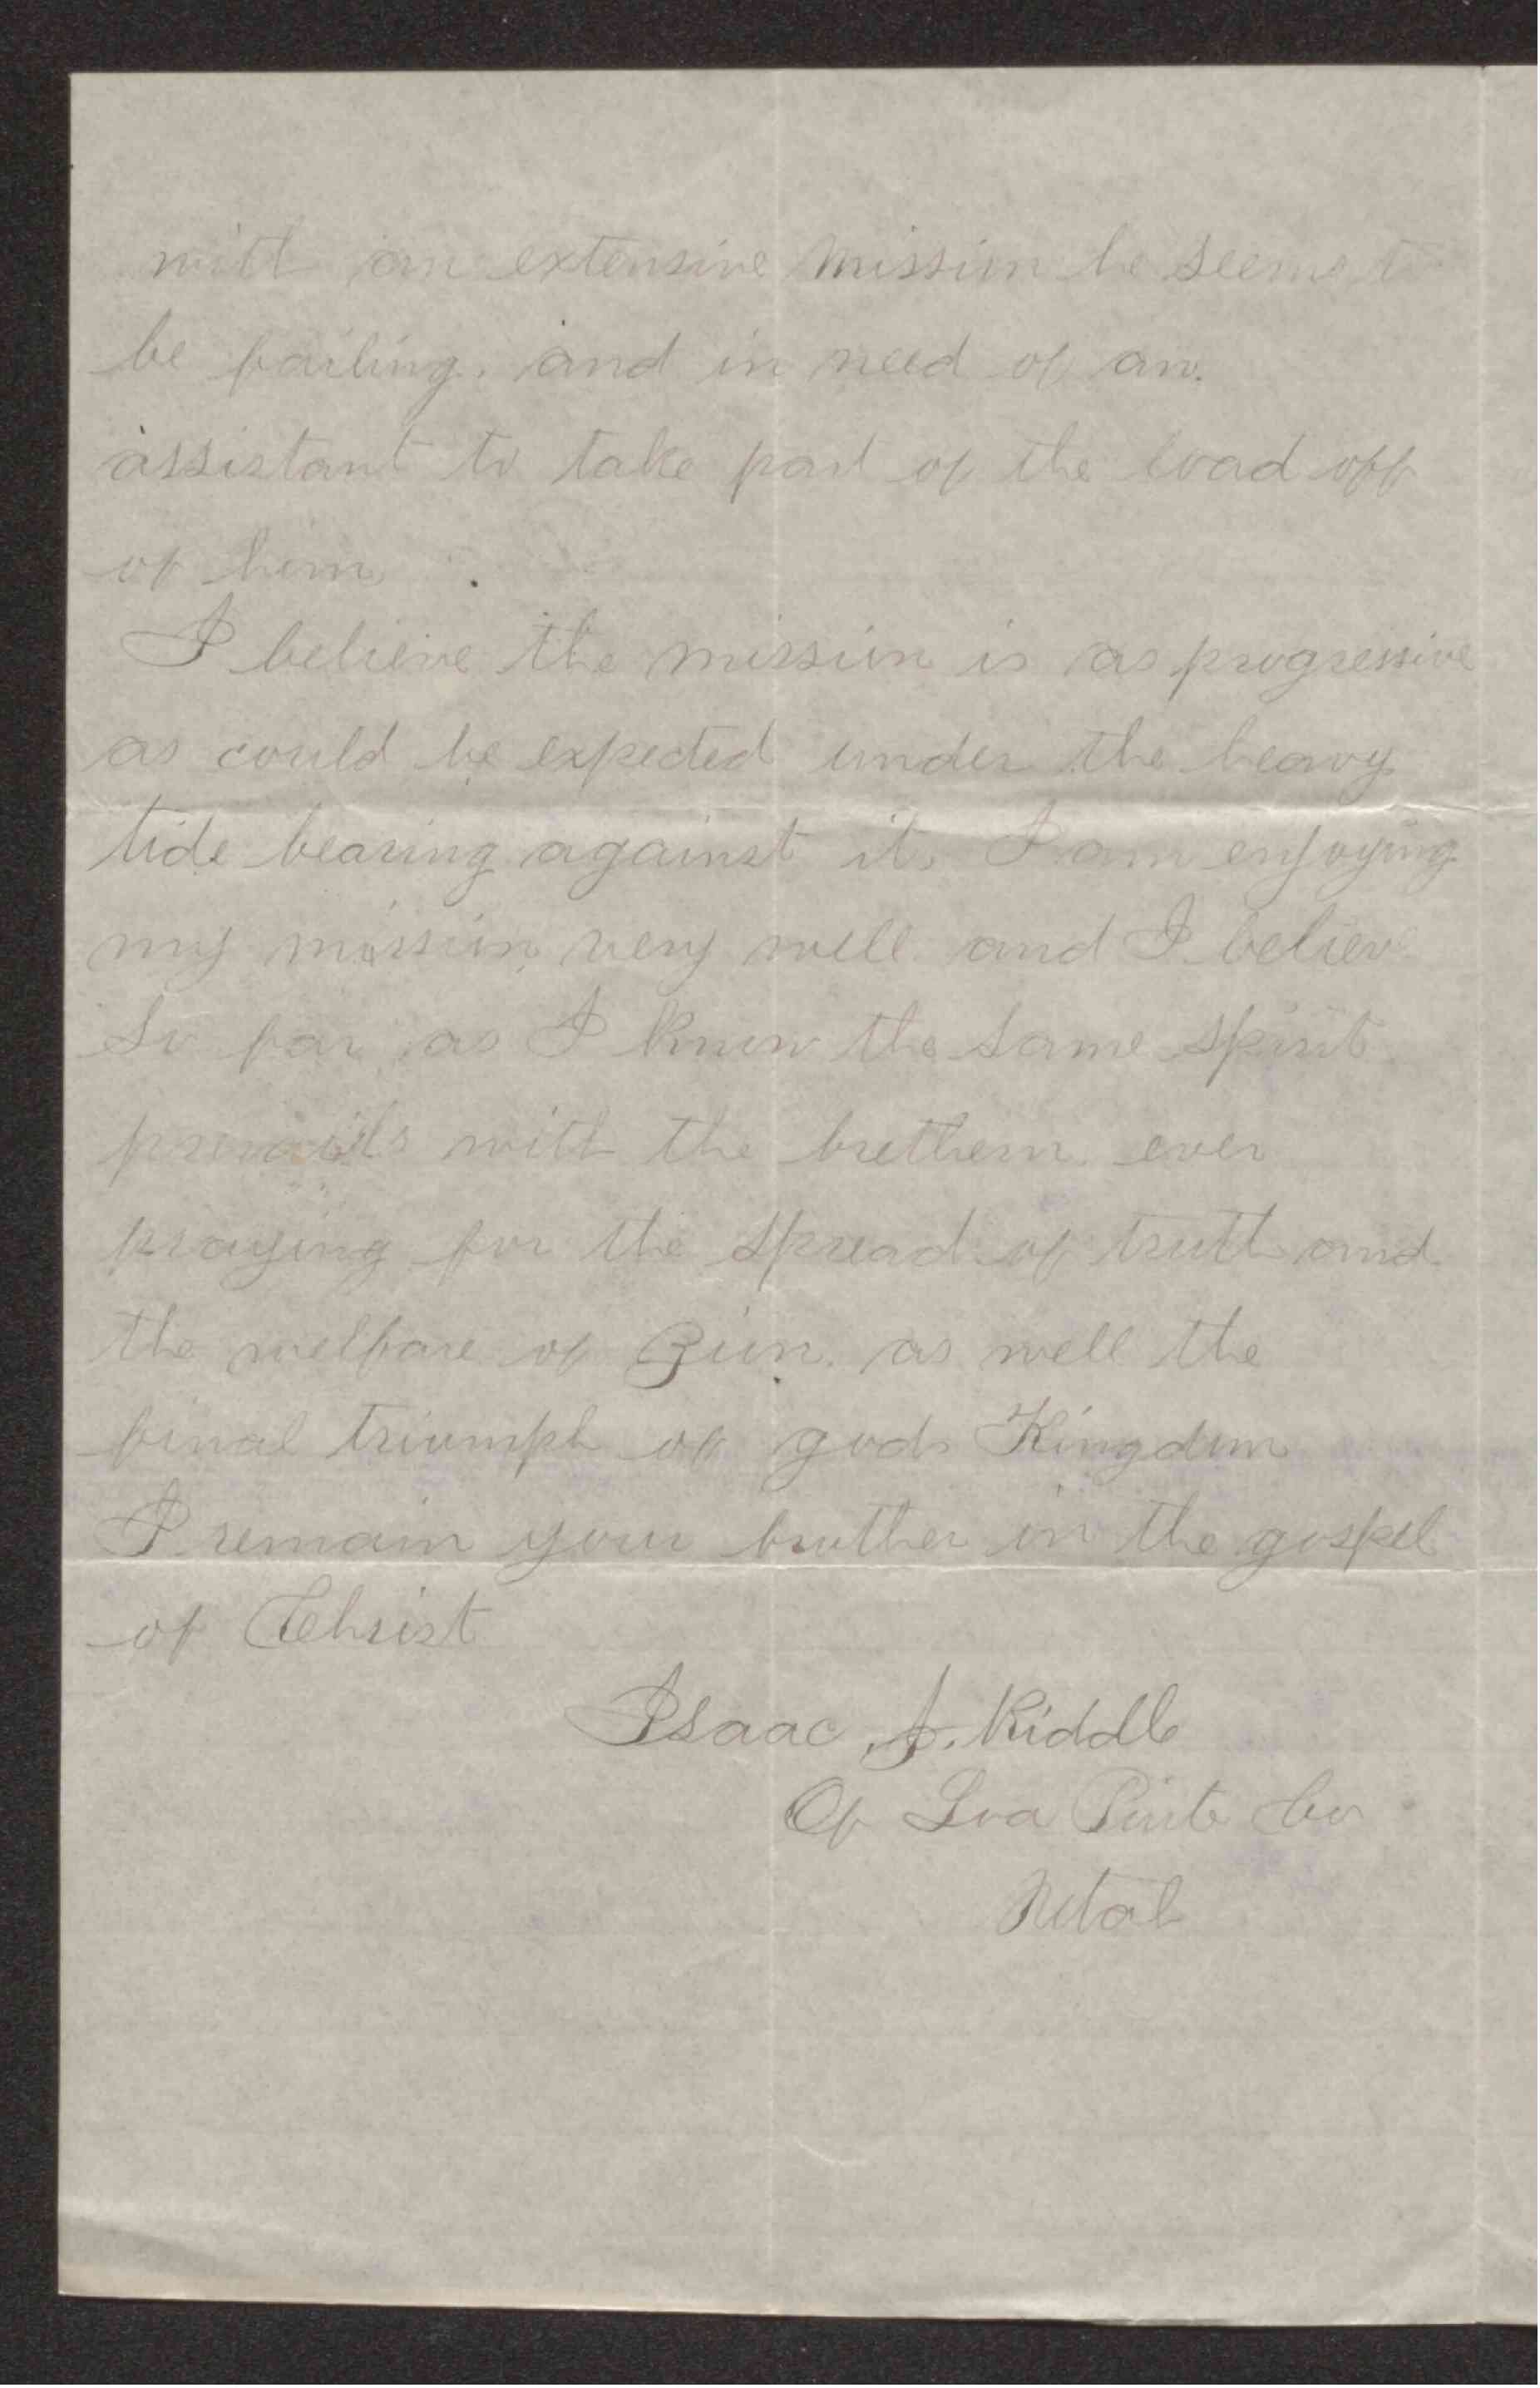 with an extensive mission he seems to
be failing, and in need of an
assistant to take part of the load off
of him
I believe the mission is as progressive
as could be expected under the heavy
tide bearing against it, I am enjoying
my mission very well and I believe
So far as I know the same spirit
prevails with the brethern ever
praying for the spread of truth and
the welfare of Zion. as well the
final triumph of gods Kingdom
I remain your brother in the gospel
of Christ
Isaac J. Riddle
Of Loa Piute Co
Utah